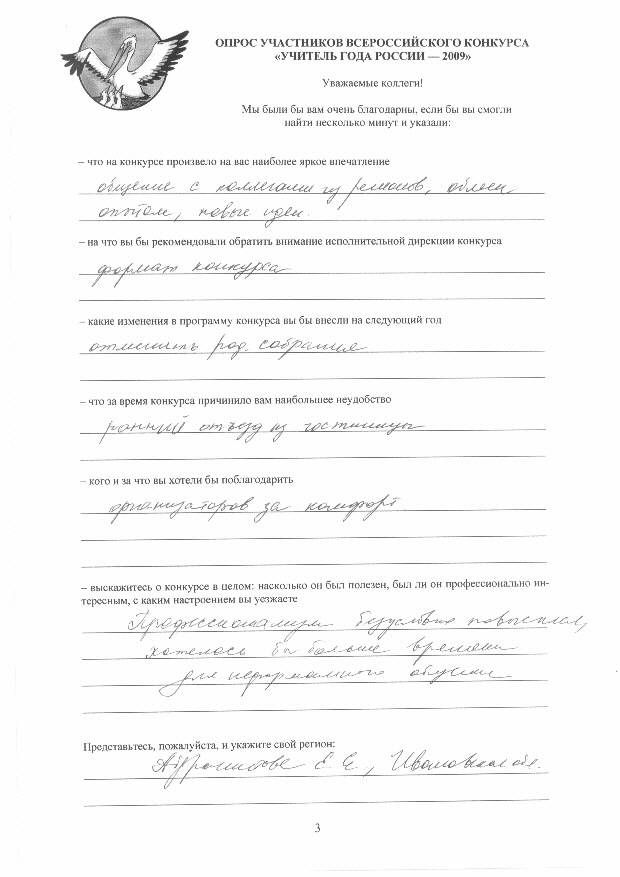 ОПРОС УЧАСТНИКОВ ВСЕРОССИЙСКОГО КОНКУРСА
«УЧИТЕЛЬ ГОДА РОССИИ — 2009»
Уважаемые коллеги!
Мы были бы вам очень благодарны, если бы вы смогли
найти несколько минут и указали:
– что на конкурсе произвело на вас наиболее яркое впечатление
общение с коллегами из регионов, обмен
опытом, новые идеи.
– на что вы бы рекомендовали обратить внимание исполнительной дирекции конкурса
формат конкурса
– какие изменения в программу конкурса вы бы внесли на следующий год
отменить род. собрания
– что за время конкурса причинило вам наибольшее неудобство
ранний отъезд из гостиницы
– кого и за что вы хотели бы поблагодарить
организаторов за комфорт
– выскажитесь о конкурсе в целом: насколько он был полезен, был ли он профессионально ин-
тересным, с каким настроением вы уезжаете
Профессионализм безусловно повысил,
хотелось бы больше времени
для неформального общения
Представьтесь, пожалуйста, и укажите свой регион:
Е. Е., Ивановская обл.
3